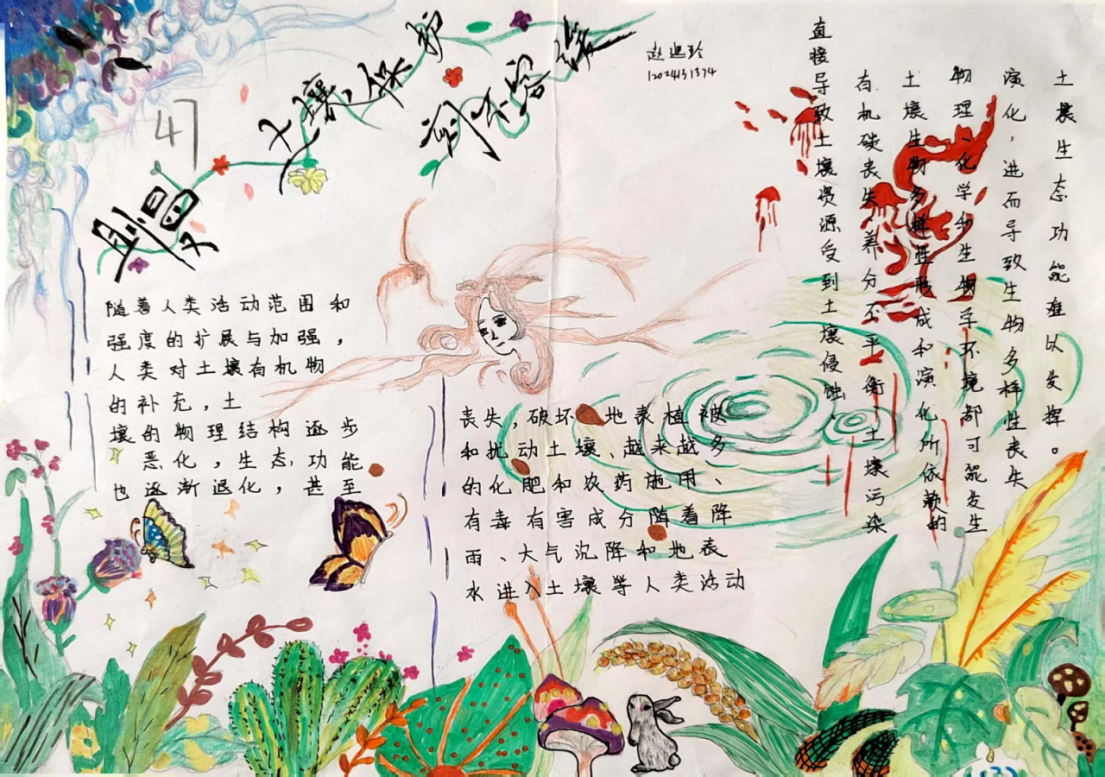 土壤保护
刻不容缓
47
12024131374
随着人类活动范围和
强度的扩展与加强,
人类对土壤有机物
的补充,土
壤的物理结构逐步
恶化,生态功能
也逐渐退化,甚至
丧失,破坏地表植被
和扰动土壤、越来越多
的化肥和农药施用、
有毒有害成分随着降
雨、大气沉降和地表
水进入土壤等人类活动
直接导致土壤资源受到土壤侵蚀、
有机碳丧失、养分不平衡、土壤污染
土壤生物多样性形成和演化所依赖的
物理、化学和生物学环境都可能发生
演化,进而导致生物多样性丧失
土壤生态功能难以发挥。